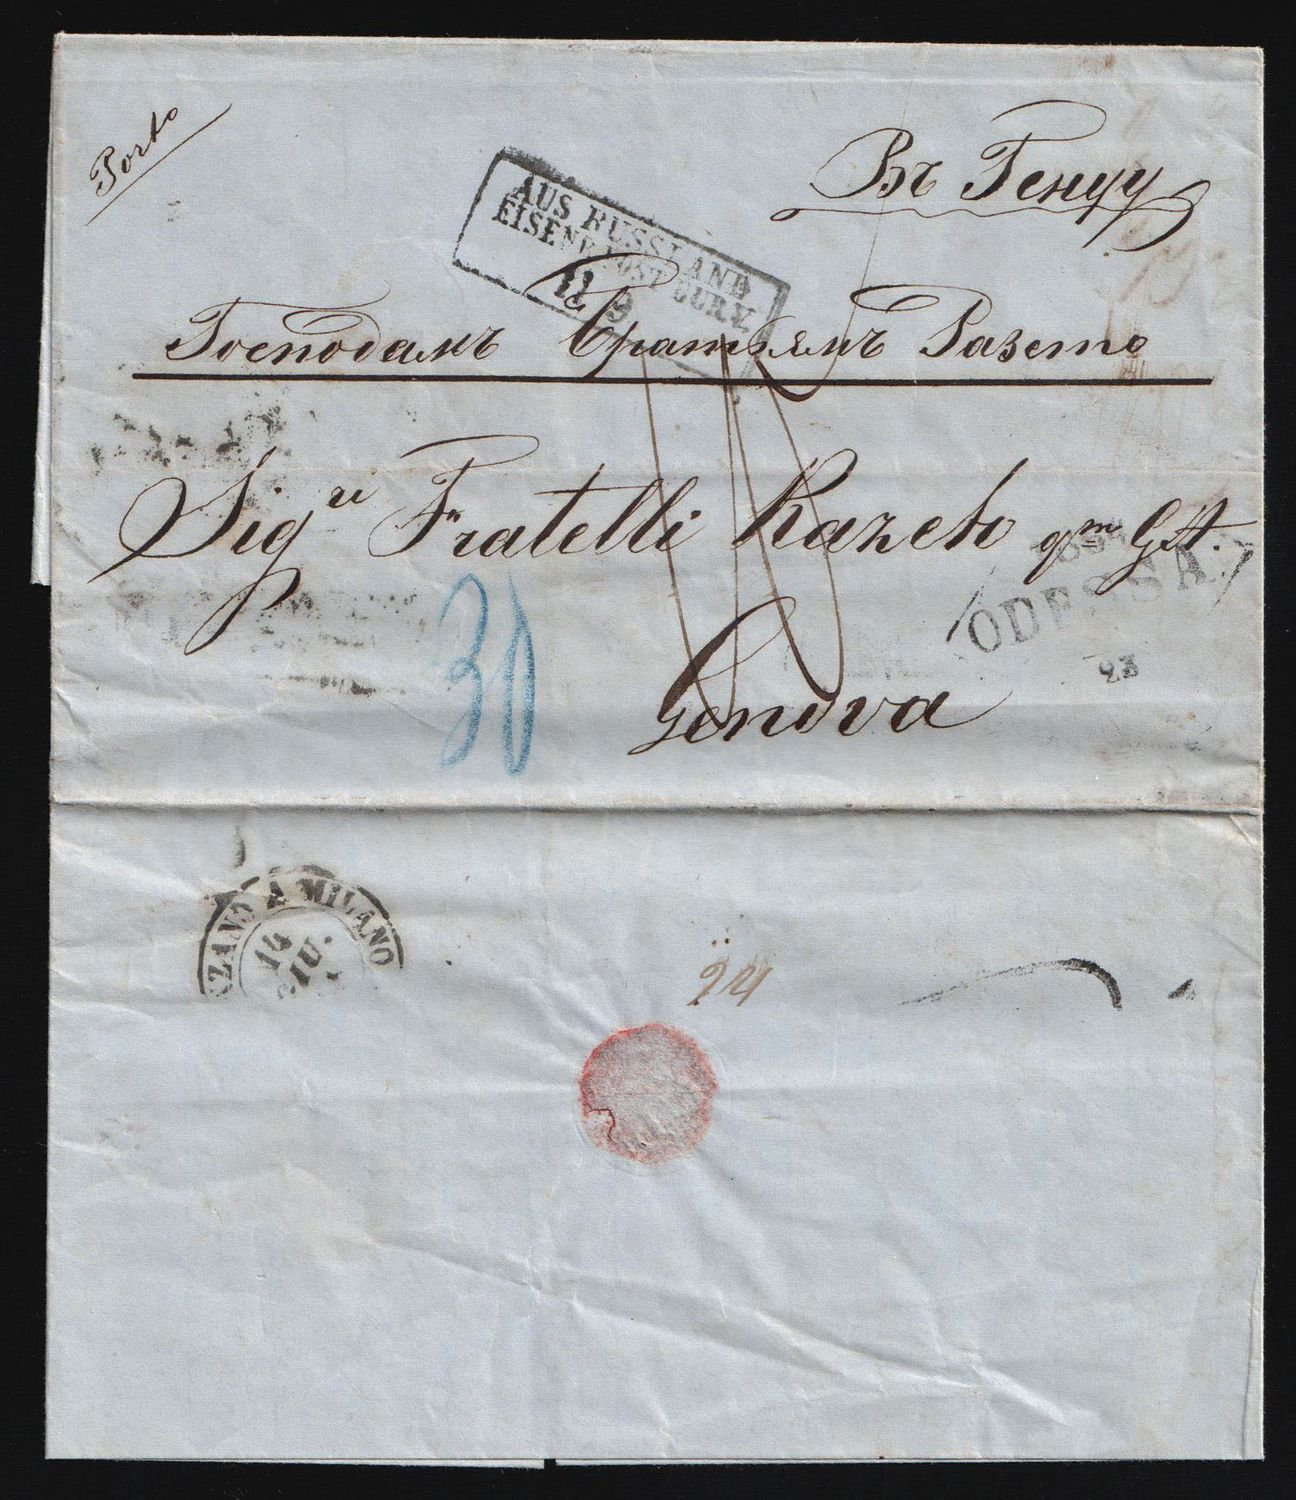 Porto
Въ Геную
AUS RUSSLAND
EISENB POST BUR V.
11 9
Господамъ Братьямъ Разето
Sig.ri Fratelli Razeto qm G.A.
ODESSA
23
30
Genova
A MILANO
14
GIU.
24